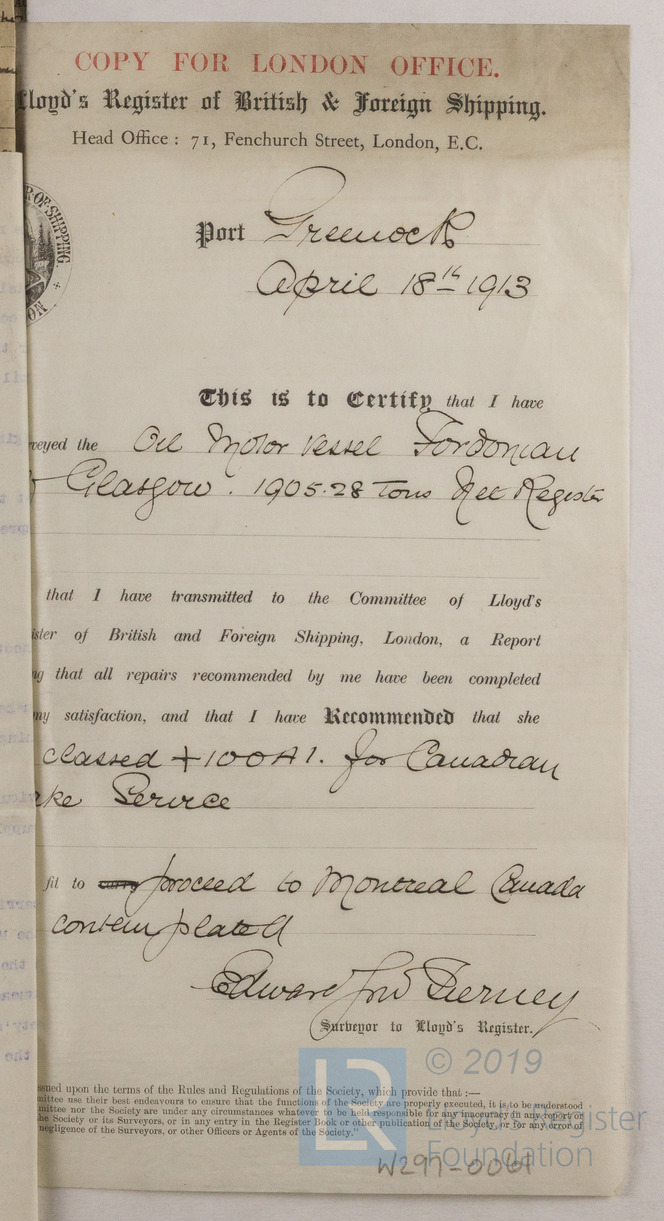 COPY FOR LONDON OFFICE.
Lloyd's Register of British & Foreign Shipping.
Head Office: 71, Fenchurch Street, London, E.C.
R·OF·SHIPPING.
Port Greenock
April 18th 1913
This is to Certify that I have
veyed the Oil Motor Vessel Fordonian
Glasgow. 1905.28 Tons Net Register
that I have transmitted to the Committee of Lloyd's
ister of British and Foreign Shipping, London, a Report
ng that all repairs recommended by me have been completed
my satisfaction, and that I have Recommended that she
classed +100A1. for Canadian
ke Service
fit to carry proceed to Montreal Canada
contemplated
Edward Jno Tierney
Surveyor to Lloyd's Register.
ssued upon the terms of the Rules and Regulations of the Society, which provide that:—
mittee use their best endeavours to ensure that the functions of the Society are properly executed, it is to be understood
mittee nor the Society are under any circumstances whatever to be held responsible for any inaccuracy in any report or
he Society or its Surveyors, or in any entry in the Register Book or other publication of the Society, or for any error of
negligence of the Surveyors, or other Officers or Agents of the Society."
© 2019
LR
Lloyd's Register
Foundation
W297-0061